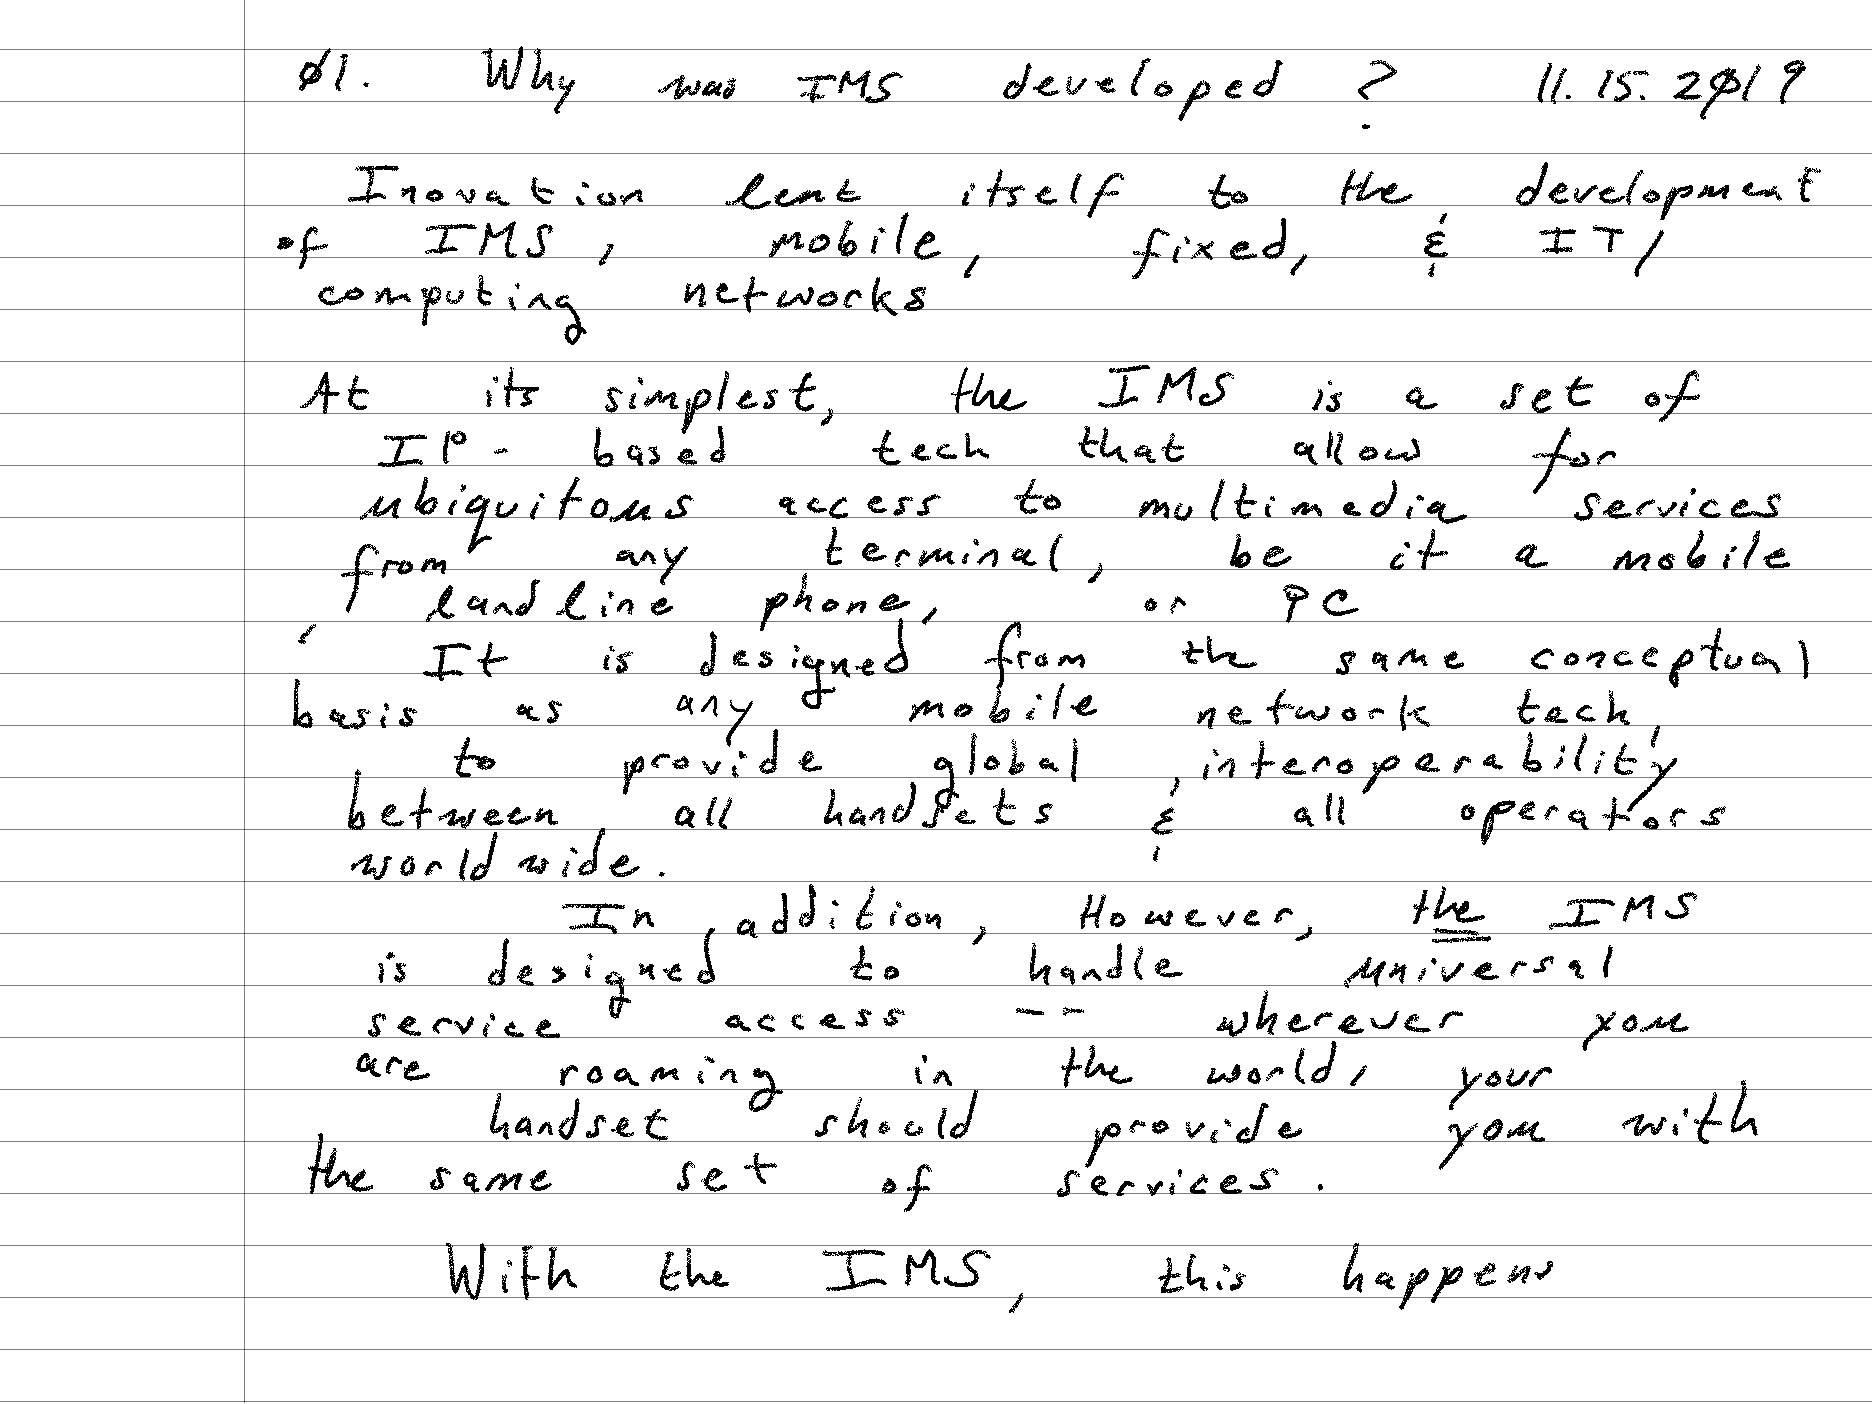 Ø1. Why was IMS developed ? 11.15.2Ø19
Inovation lent itself to the development
of IMS, mobile, fixed, & IT/
computing networks
At its simplest, the IMS is a set of
IP-based tech that allow for
ubiquitous access to multimedia services
from any terminal, be it a mobile
, landline phone, or PC
It is designed from the same conceptual
basis as any mobile network tech,
to provide global interoperability
between all handsets & all operators
worldwide.
In addition, However, the IMS
is designed to handle universal
service access -- wherever you
are roaming in the world, your
handset should provide you with
the same set of services.
With the IMS, this happens